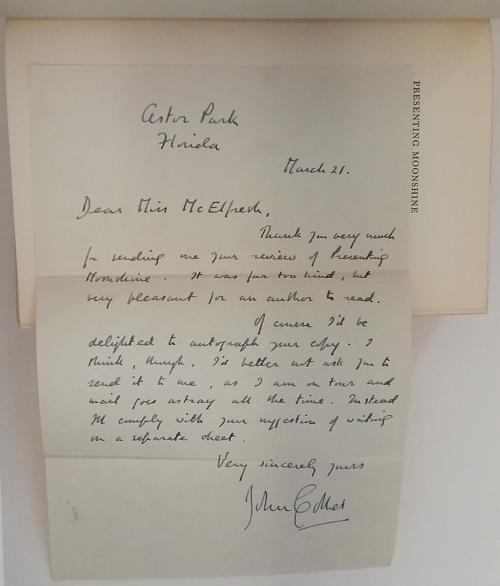 PRESENTING MOONSHINE
Astor Park
Florida
March 21.
Dear Miss McElfresh,
Thank you very much
for sending me your review of Presenting
Moonshine. It was far too kind, but
very pleasant for an author to read.
Of course I'd be
delighted to autograph your copy. I
think, though, I'd better not ask you to
send it to me, as I am on tour and
mail goes astray all the time. Instead
I'll comply with your suggestion of writing
on a separate sheet.
Very sincerely yours
John Collier